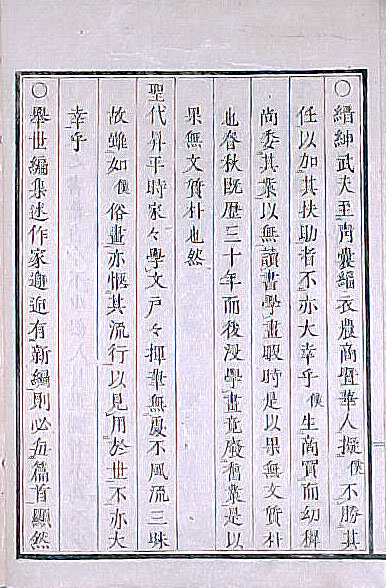 〇縉紳武夫至青囊緇衣農商曁華人擬僕不勝其
任以加其扶助者不亦大幸乎僕生商賈而幼稺
尚委其業以無讀書學畫暇時是以果無文質朴
也春秋既歴三十年而後漫學畫竟廢舊業是以
果無文質朴也然
聖代昇平時家々學文戸々揮筆無處不風流三昧
故雖如僕俗畫亦惬其流行以見用於世不亦大
幸乎
〇舉世編集述作家邂逅有新編則必每篇首顯然